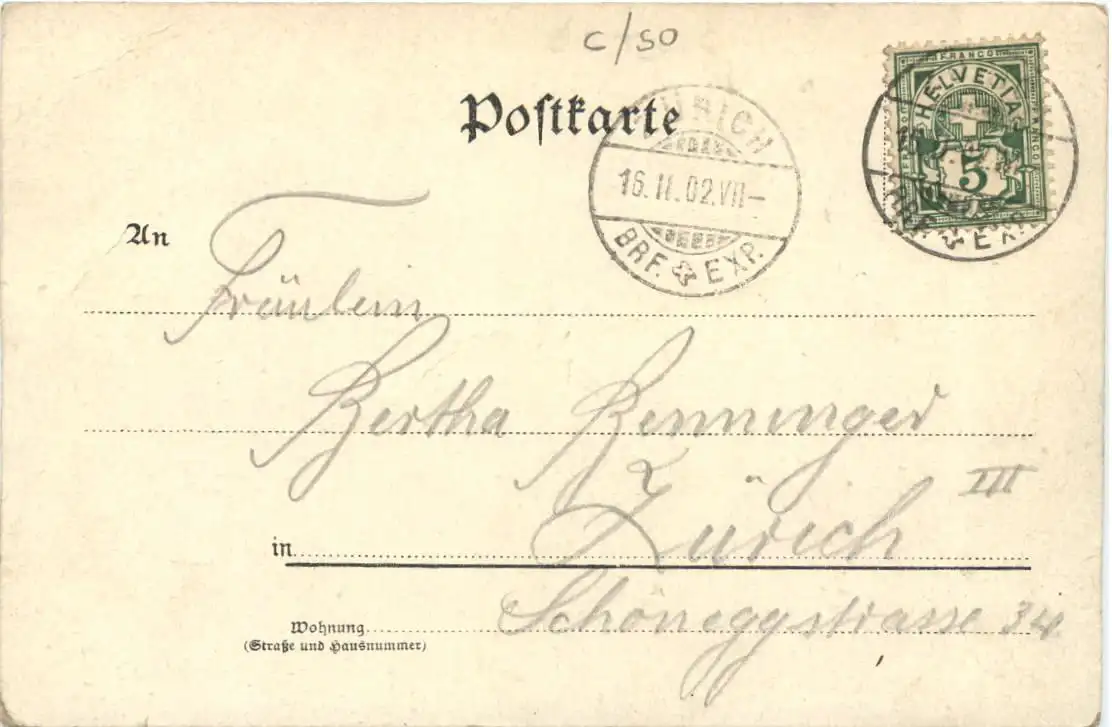 C/50
Postkarte
FRANCO
HELVETIA
5
FRANCO
ZÜRICH
16.II.02.VII–
BRF. EXP.
BRF. EXP.
An
Fräulein
Bertha Renninger
Zürich III
in
Schöneggstrasse 34
Wohnung
(Straße und Hausnummer)